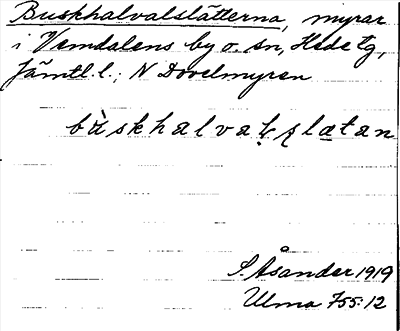 Buskhalvalslätterna, myrar
i Vemdalens by o. sn, Hede tg,
Jämtl. l.; N Dovelmyren
bùskhalvaļşlætan
S. Åsander 1919
Ulma 755:12